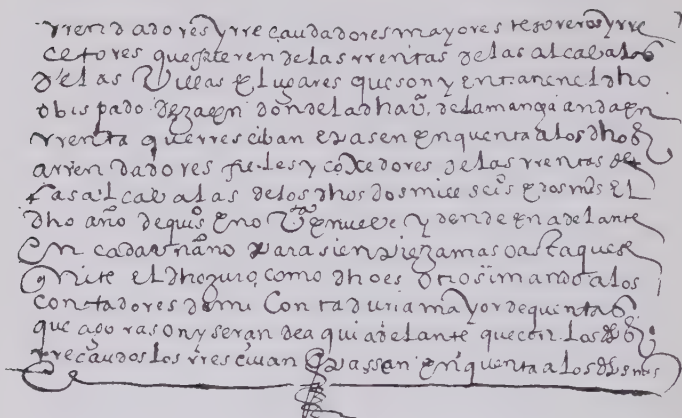 rrendadores y rrecaudadores mayores tesoreros y rre
cetores que fueren de las rrentas de las alcavalas
de las Villas e lugares que son y entran en el dho
obispado de Jaen donde la dha vª de la mancha anda en
rrenta que rresciban e pasen en quenta a los dhos
arrendadores fieles y cojedores de las rrentas de
las alcavalas de los dhos dos mill seisº e dos mrs el
dho año de quisº e no vta e nueve y dende en adelante
en cada un año para sienpre jamas o asta que se
quite el dho juro, como dho es otrosi mando a los
contadores de mi Contaduria mayor de quentas
que agora son y seran de aqui adelante que con los dhos
rrecaudos les rresciban e passen en quenta a los dhos mis